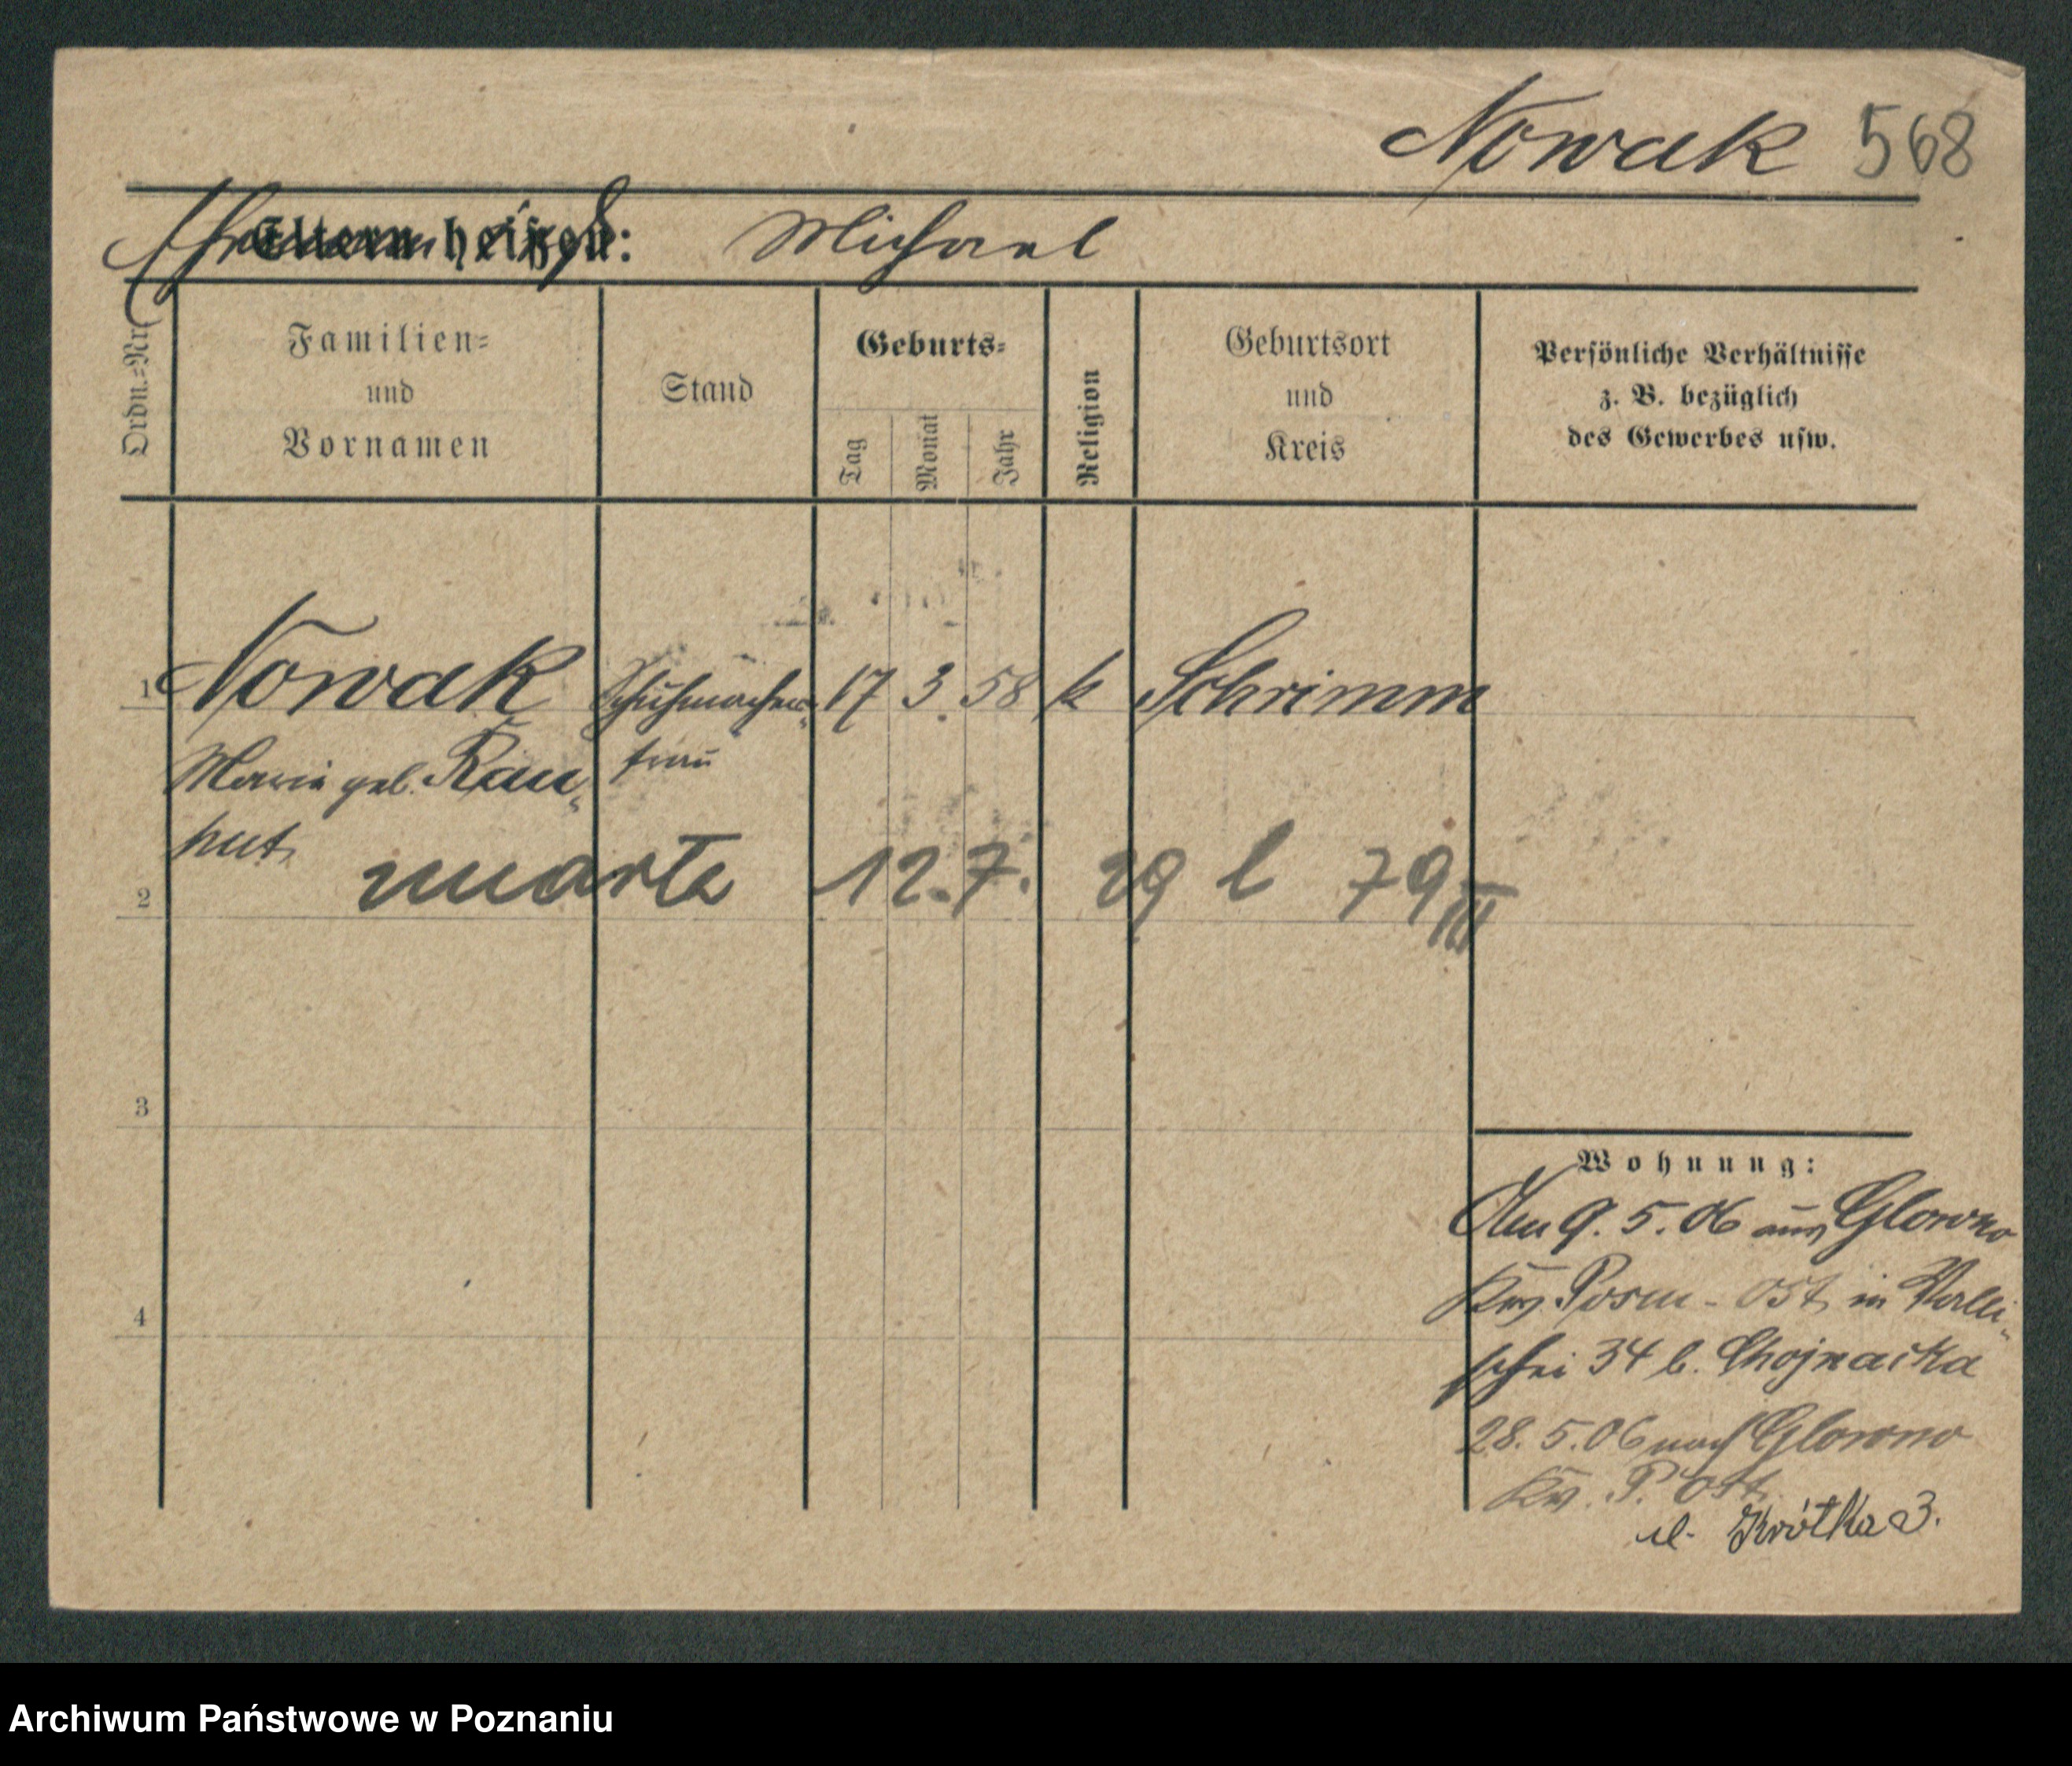 Nowak 568
Ehemann heißt
Eltern heißen: Michael
Ordn.-Nr.
Familien-
und
Vornamen
Stand
Geburts-
Tag
Monat
Jahr
Religion
Geburtsort
und
Kreis
Persönliche Verhältnisse
z. B. bezüglich
des Gewerbes usw.
1 Nowak Schuhmacher- 17 3. 58 k Schrimm
Marie geb. Rau- frau
hut
2 umarła 12.7. 29 l 79
3
4
Wohnung:
Am 9. 5. 06 aus Glowno
Krs. Posen-Ost in Walli-
schei 34 b. Chojnacka
28. 5. 06 nach Glowno
Kr. P. Ost
ul. Krótka 3.
Archiwum Państwowe w Poznaniu